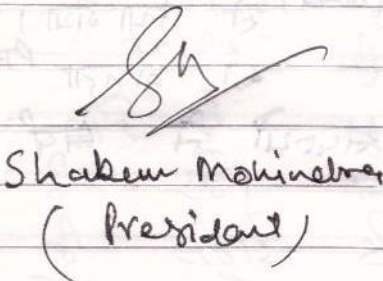 Shakun Mohindra
(President)